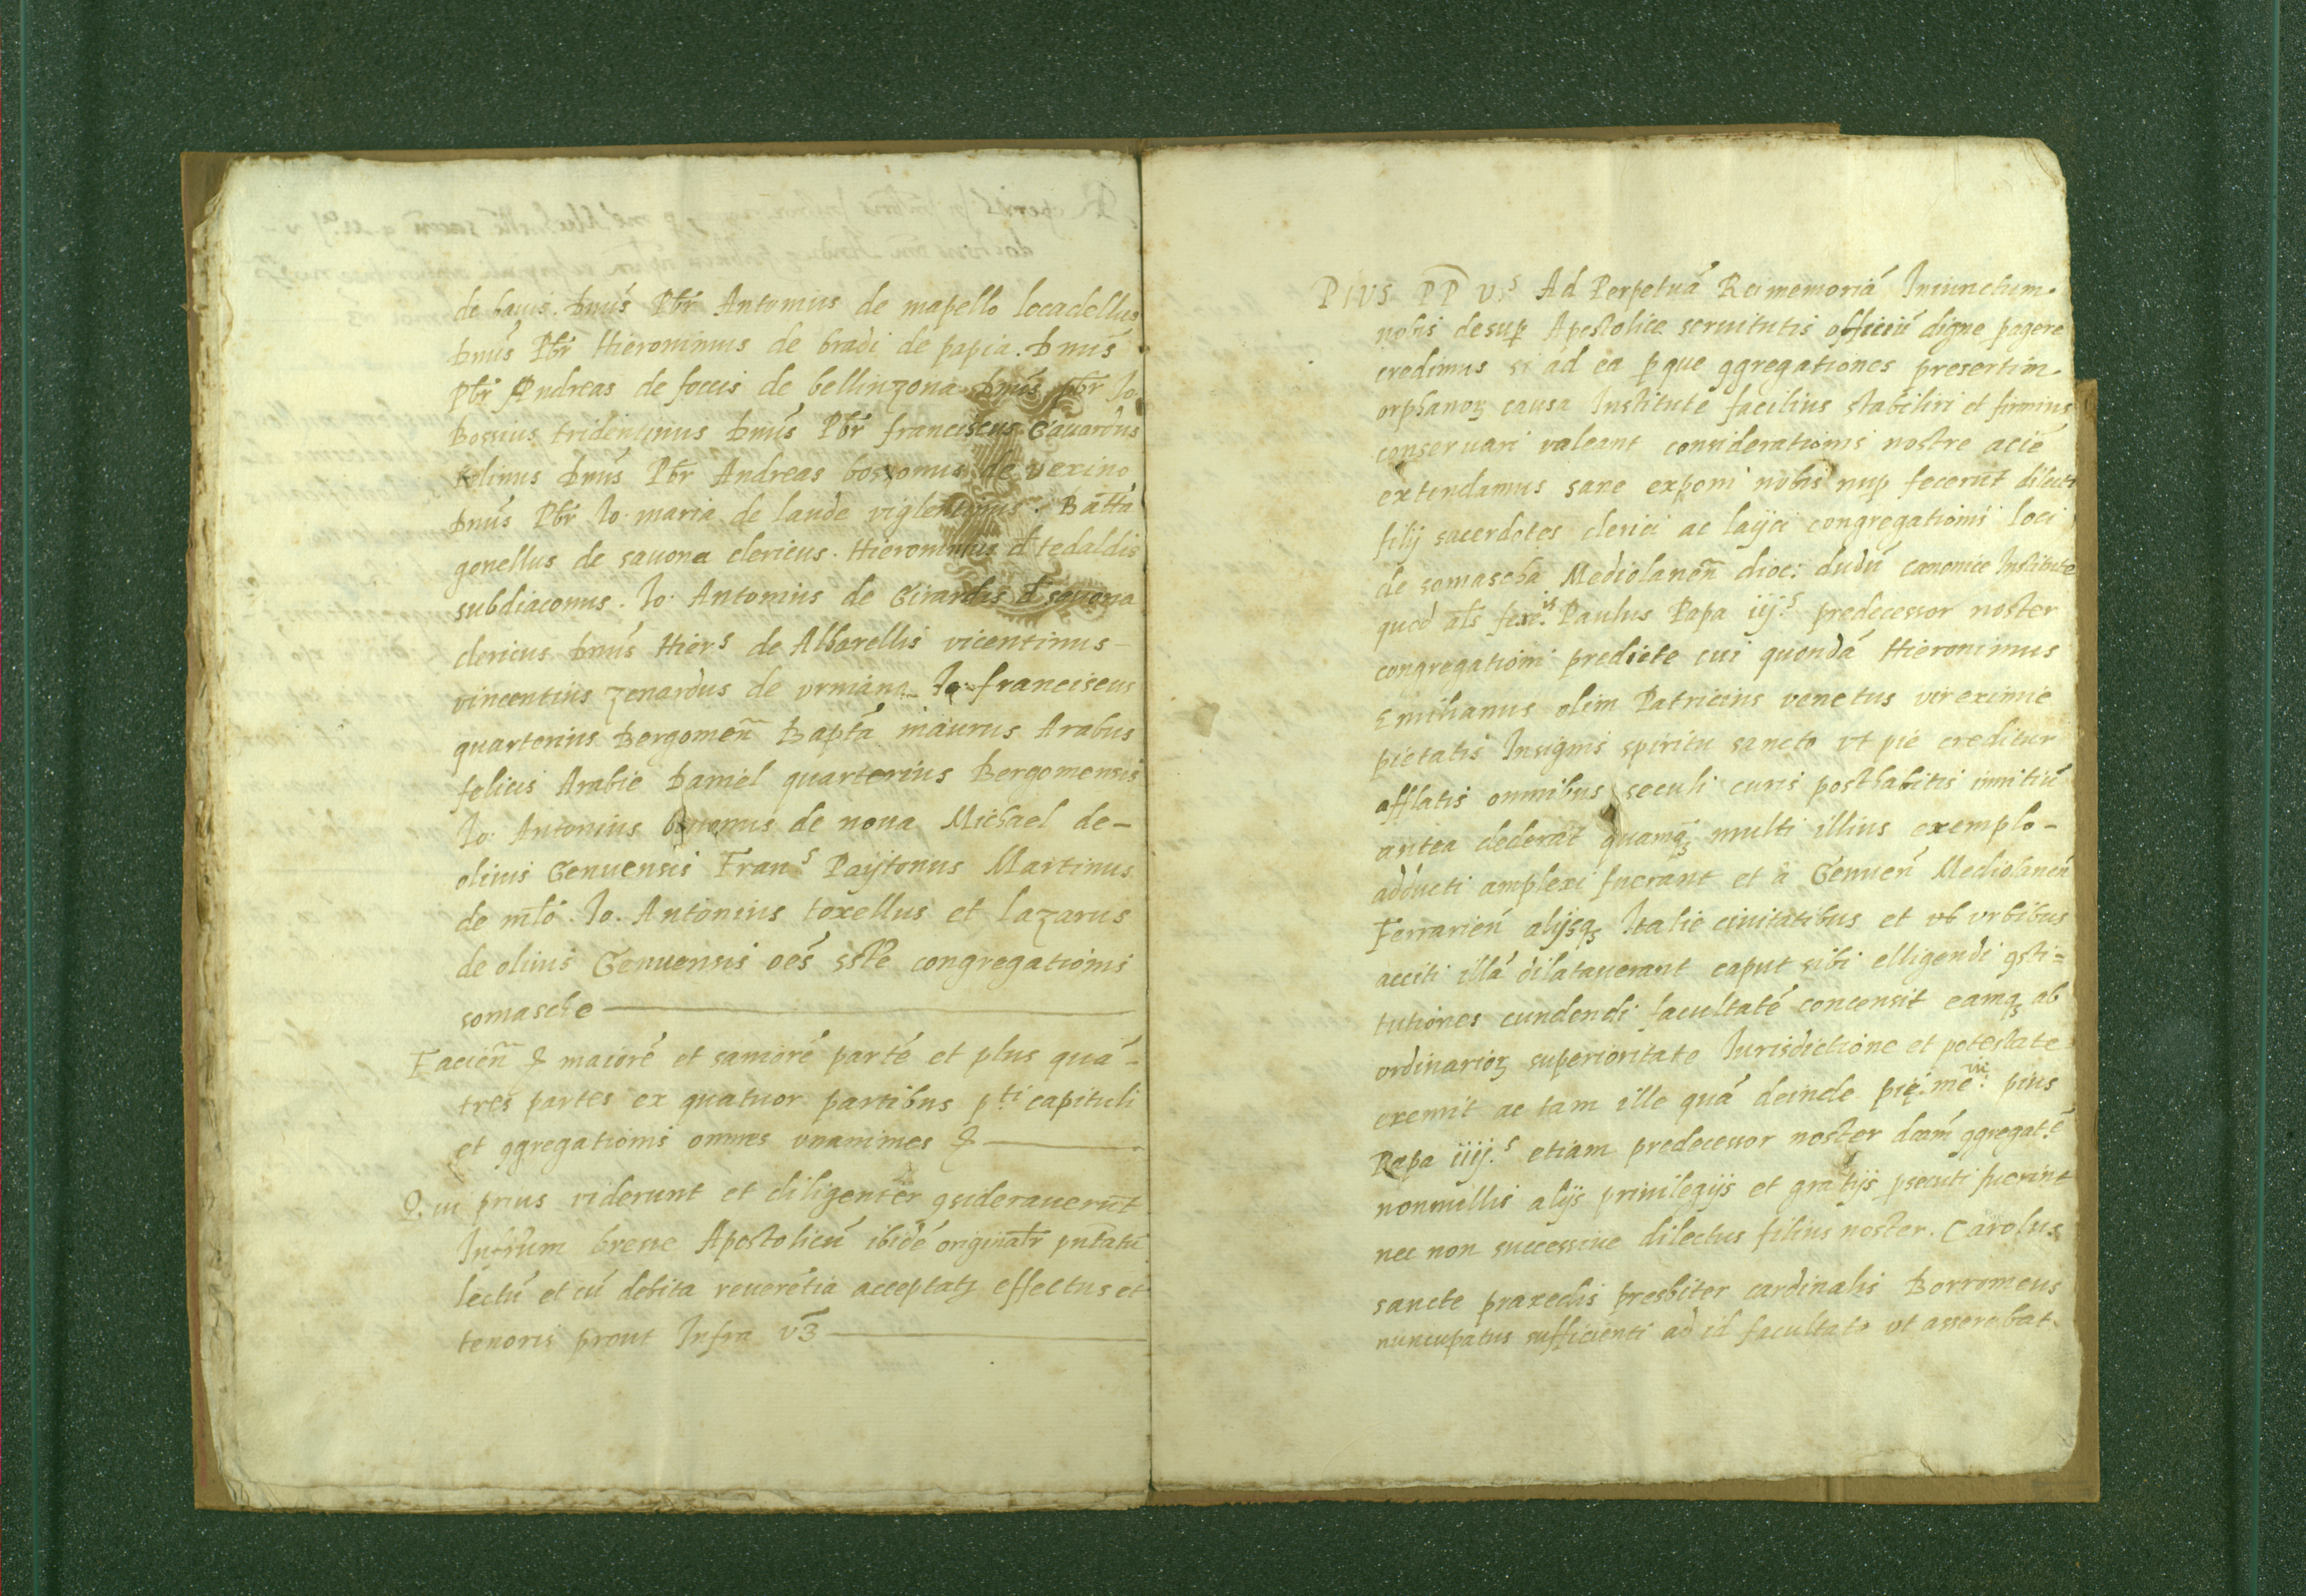 de bauis. Dnus Pbr Antonius de mapello locadellus
Dnus Pbr Hieronimus de bradi de papia. Dnus
Pbr Andreas de foccis de bellinzona Dnus pbr Io.
Bossius tridentinus Dnus Pbr franciscus Gauardus
Dnus Pbr Andreas bossonus de vexino
Dnus Pbr Io. maria de laude viglentinus. Batta
gonellus de sauona clericus. Hieronimus d tedaldis
subdiaconus. Io. Antonius de Girardis d sauona
clericus Dnus Hiers de Albarellis vicentinus
vincentius zenardus de vrniana Io. franciscus
quarterius Bergomen Bapta maurus Arabus
felicis Arabie Daniel quarterius Bergomensis
Io. Antonius de nona Michael de-
oliuis Genuensis Frans Paijtonus Martinus
de mlo. Io. Antonius toxellus et lazarus
de oliuis Genuensis oes sste congregationis
somasche
Facien & maiore et saniore parte et plus qua-
tres partes ex quatuor partibus pti capituli
et ggregationis omnes vnanimes &
Qui prius viderunt et diligenter gsiderauerunt
Infrum breue Apostolicu ibide originatr pntatu
lectu et cu debita reueretia acceptatz effectus et
tenoris prout Infra vz
PIVS PP Vs Ad Perpetua Rei memoria Iniunctum
nobis desup Apostolice seruitutis officiu digne pagere
credimus si ad ea p que ggregationes presertim
orphanoz causa Institute facilius stabiliri et firmius
conseruari valeant considerationis nostre acie
extendamus sane exponi nobis nup fecerut dilecti
filij sacerdotes clerici ac laijci congregationis loci
de somascha Mediolanen dioc: dudu canonice Institute
quod als Paulus Papa iij.s predecessor noster
congregationi predicte cui quonda Hieronimus
Emilianus olim Patricius venetus vir eximie
pietatis Insignis spiritu sancto vt pie creditur
afflatis omnibus seculi curis posthabitis initiu
antea dederat quamq multi illius exemplo-
adducti amplexi fuerant et a Genuen Mediolanen
Ferrarien alijsq Italie ciuitatibus et vb vrbibus
acciti illa dilatauerant caput sibi elligendi gsti=
tutiones cundendi facultate concensit eamq ab
ordinarioz superioritate Iurisdictione et potestate
exemit ac tam ille qua deinde pie. me: pius
Papa iiij.s etiam predecessor noster dcam ggregate
nonnullis alijs priuilegijs et gratijs psecuti fuerint
nec non successiue dilectus filius noster. Carolus
sancte praxedis presbiter cardinalis Borromeus
nuncupatus sufficienti ad id facultate vt asserebat